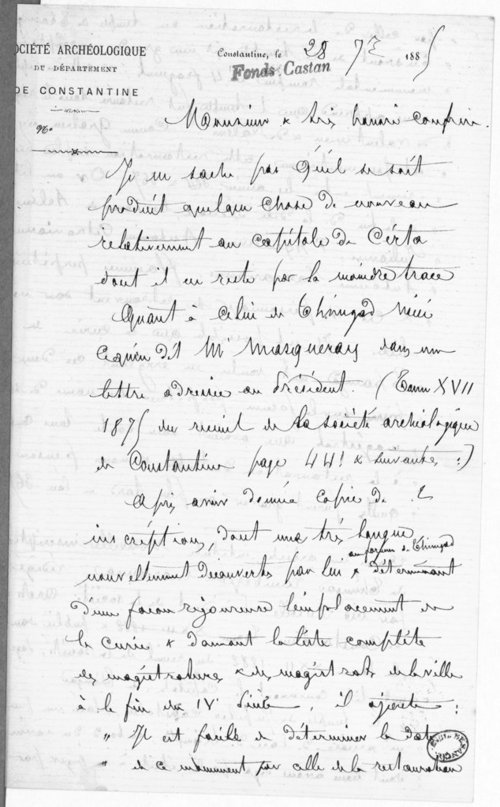 SOCIÉTÉ ARCHÉOLOGIQUE
DU DÉPARTEMENT
DE CONSTANTINE
No.
Constantine, le 28 7bre 1885
Fonds Castan
Monsieur & très honoré confrère.
Je ne sache pas qu'il se soit
produit quelque chose de nouveau
relativement au capitole de Cirta
dont il ne reste pas la moindre trace
Quant à celui de Thimgad voici
ce qu'en dit Mr Masqueray dans une
lettre adressée au Président. (Tome XVII
1875 du recueil de la Société archéologique
de Constantine page 441 & suivantes :)
Après avoir donné copie de 2
inscriptions, dont une très longue
nouvellement découvertes par lui au forum de Thimgad & déterminant
d'une façon rigoureuse l'emplacement de
la curie & donnant la liste complète
des magistratures & des magistrats de la ville
à la fin du IVe Siècle, il ajoute :
" Il est facile de déterminer la date
" de ce monument par celle de la restauration